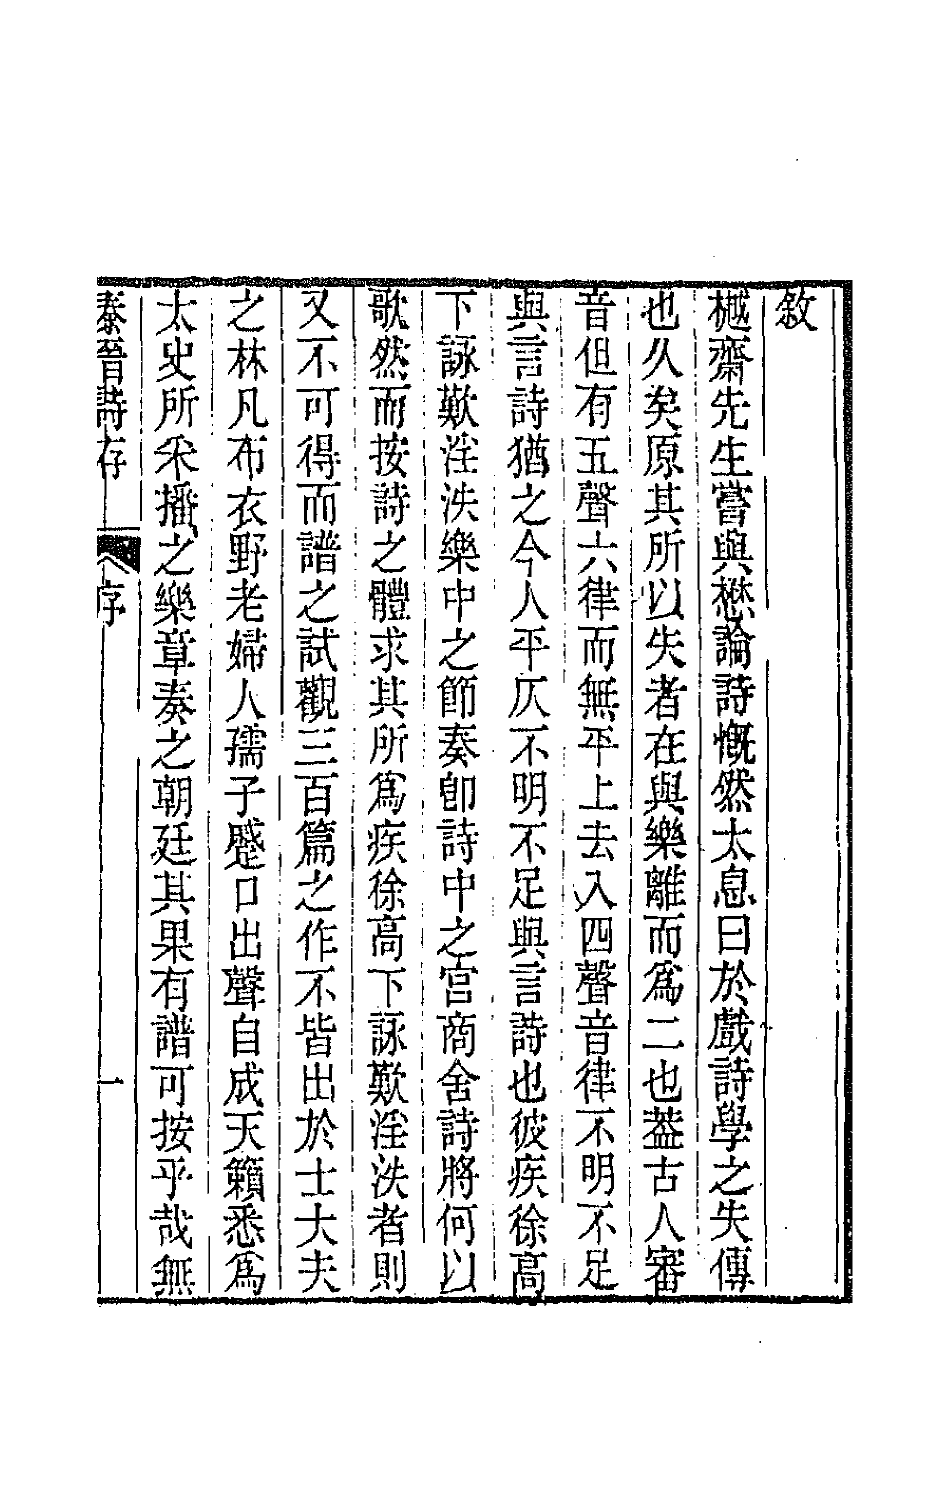 敘
樾齋先生嘗與懋論詩慨然太息曰於戲詩學之失傳
也久矣原其所以失者在與樂離而爲二也葢古人審
音但有五聲六律而無平上去入四聲音律不明不足
與言詩猶之今人平仄不明不足與言詩也彼疾徐高
下詠歎淫泆樂中之節奏卽詩中之宮商舍詩將何以
歌然而按詩之體求其所爲疾徐高下詠歎淫泆者則
又不可得而譜之試觀三百篇之作不皆出於士大夫
之林凡布衣野老婦人孺子蹙口出聲自成天籟悉爲
太史所采播之樂章奏之朝廷其果有譜可按乎哉無
秦晉詩存 序 一